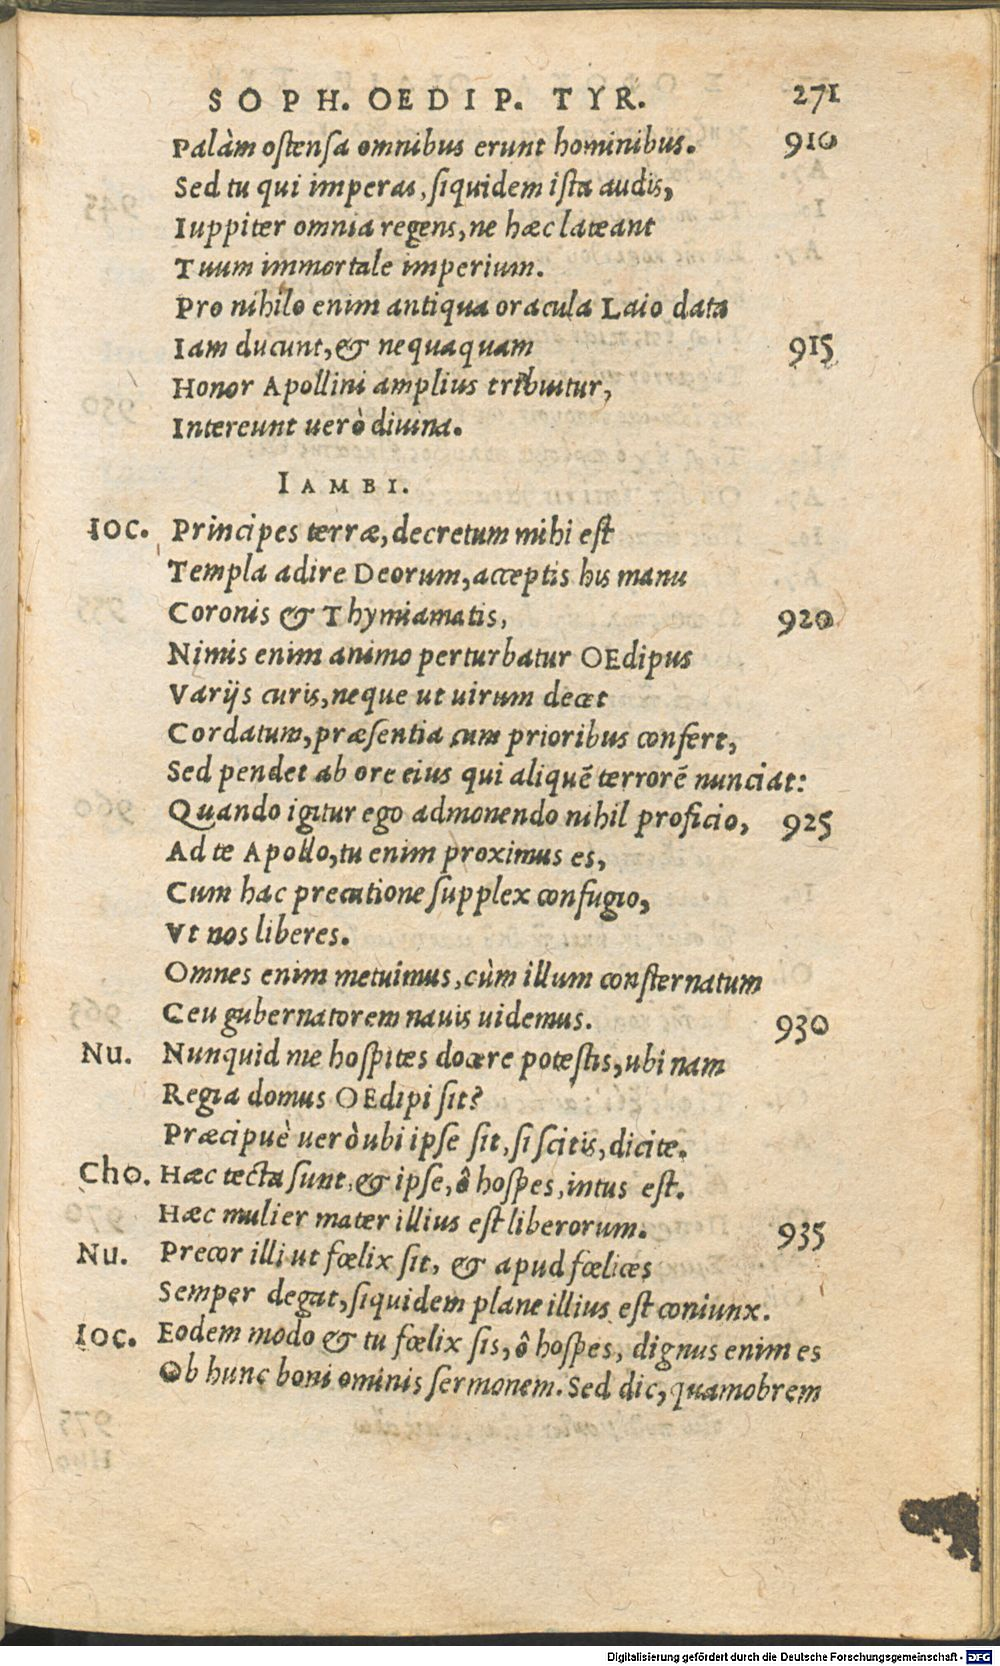 SOPH. OEDIP. TYR. 271
Palàm ostensa omnibus erunt hominibus. 910
Sed tu qui imperas, siquidem ista audis,
Iuppiter omnia regens, ne hæc lateant
Tuum immortale imperium.
Pro nihilo enim antiqua oracula Laio data
Iam ducunt, & nequaquam 915
Honor Apollini amplius tribuitur,
Intereunt uerò diuina.
IAMBI.
IOC. Principes terræ, decretum mihi est
Templa adire Deorum, acceptis his manu
Coronis & Thymiamatis, 920
Nimis enim animo perturbatur OEdipus
Varijs curis, neque ut uirum decet
Cordatum, præsentia cum prioribus confert,
Sed pendet ab ore eius qui aliquē terrorē nunciat:
Quando igitur ego admonendo nihil proficio, 925
Ad te Apollo, tu enim proximus es,
Cum hac precatione supplex confugio,
Vt nos liberes.
Omnes enim metuimus, cùm illum consternatum
Ceu gubernatorem nauis uidemus. 930
Nu. Nunquid me hospites docere potestis, ubi nam
Regia domus OEdipi sit?
Præcipuè uerò ubi ipse sit, si scitis, dicite.
Cho. Hæc tecta sunt, & ipse, ô hospes, intus est.
Hæc mulier mater illius est liberorum. 935
Nu. Precor illi ut fœlix sit, & apud fœlices
Semper degat, siquidem plane illius est coniunx.
IOC. Eodem modo & tu fœlix sis, ô hospes, dignus enim es
Ob hunc boni ominis sermonem. Sed dic, quamobrem
Digitalisierung gefördert durch die Deutsche Forschungsgemeinschaft - DFG